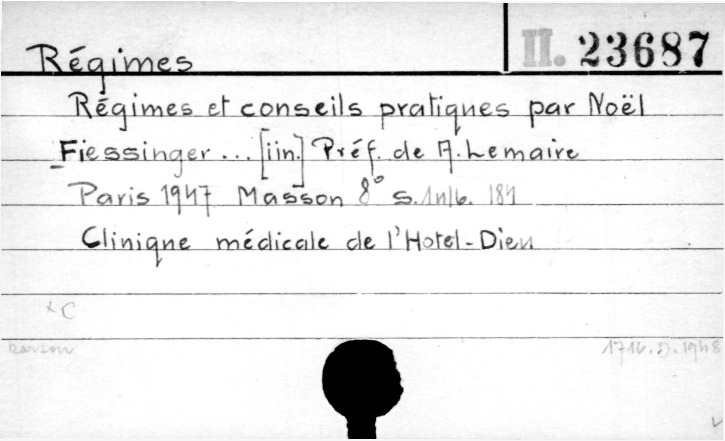 Régimes II. 23687
Régimes et conseils pratiques par Noël
Fiessinger ... [iin.] Préf. de A. Lemaire
Paris 1947 Masson 8° s. 184
Clinique médicale de l'Hotel-Dieu
C